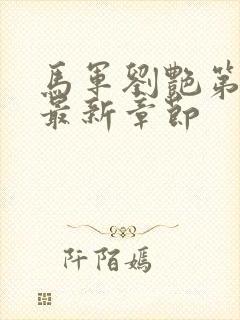 馬軍劉艷第
最新章節
阡陌嫣